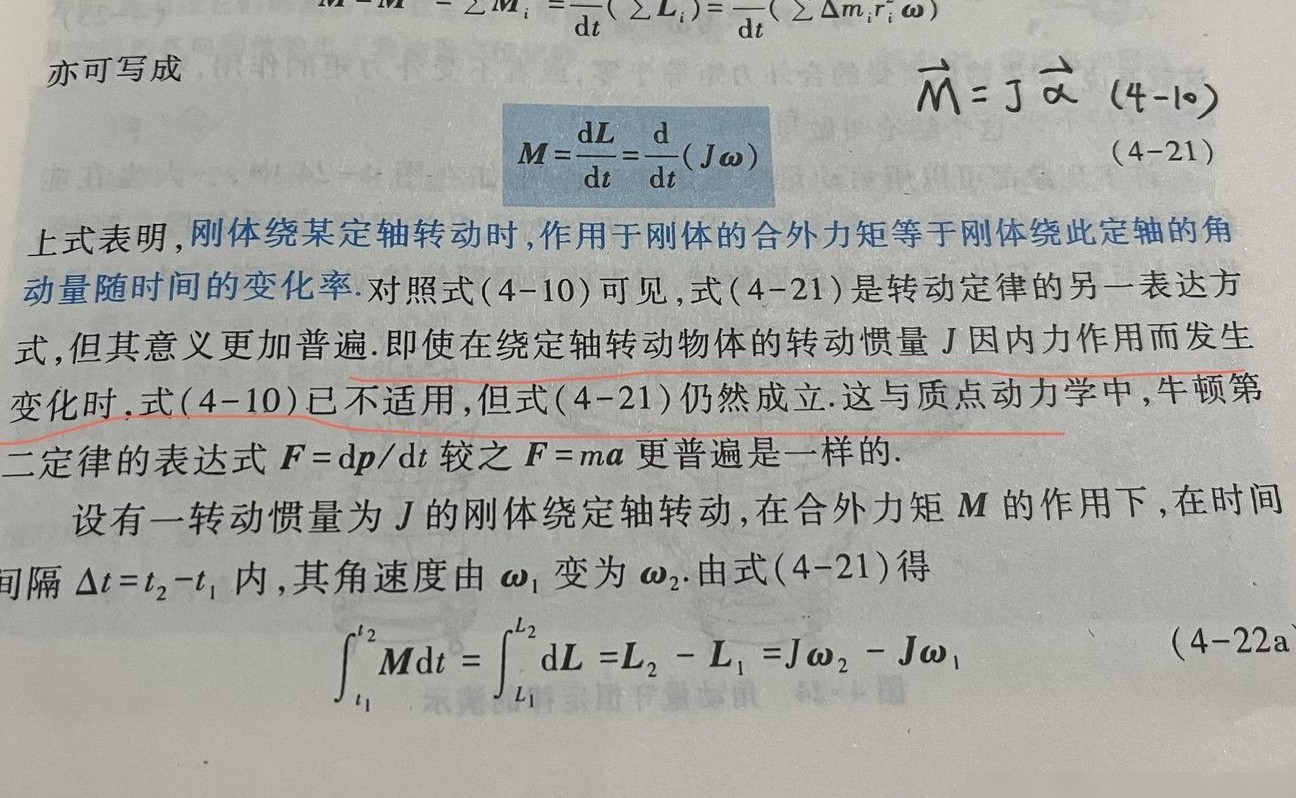 M = M = ∑ M_i = d/dt ( ∑ L_i ) = d/dt ( ∑ Δm_i r_i^2 ω )
亦可写成
M⃗ = J α⃗ (4-10)
M = dL/dt = d/dt (Jω) (4-21)
上式表明,刚体绕某定轴转动时,作用于刚体的合外力矩等于刚体绕此定轴的角
动量随时间的变化率.对照式(4-10)可见,式(4-21)是转动定律的另一表达方
式,但其意义更加普遍.即使在绕定轴转动物体的转动惯量 J 因内力作用而发生
变化时,式(4-10)已不适用,但式(4-21)仍然成立.这与质点动力学中,牛顿第
二定律的表达式 F = dp/dt 较之 F = ma 更普遍是一样的.
设有一转动惯量为 J 的刚体绕定轴转动,在合外力矩 M 的作用下,在时间
间隔 Δt = t₂ - t₁ 内,其角速度由 ω₁ 变为 ω₂.由式(4-21)得
∫_{t₁}^{t₂} M dt = ∫_{L₁}^{L₂} dL = L₂ - L₁ = Jω₂ - Jω₁ (4-22a)